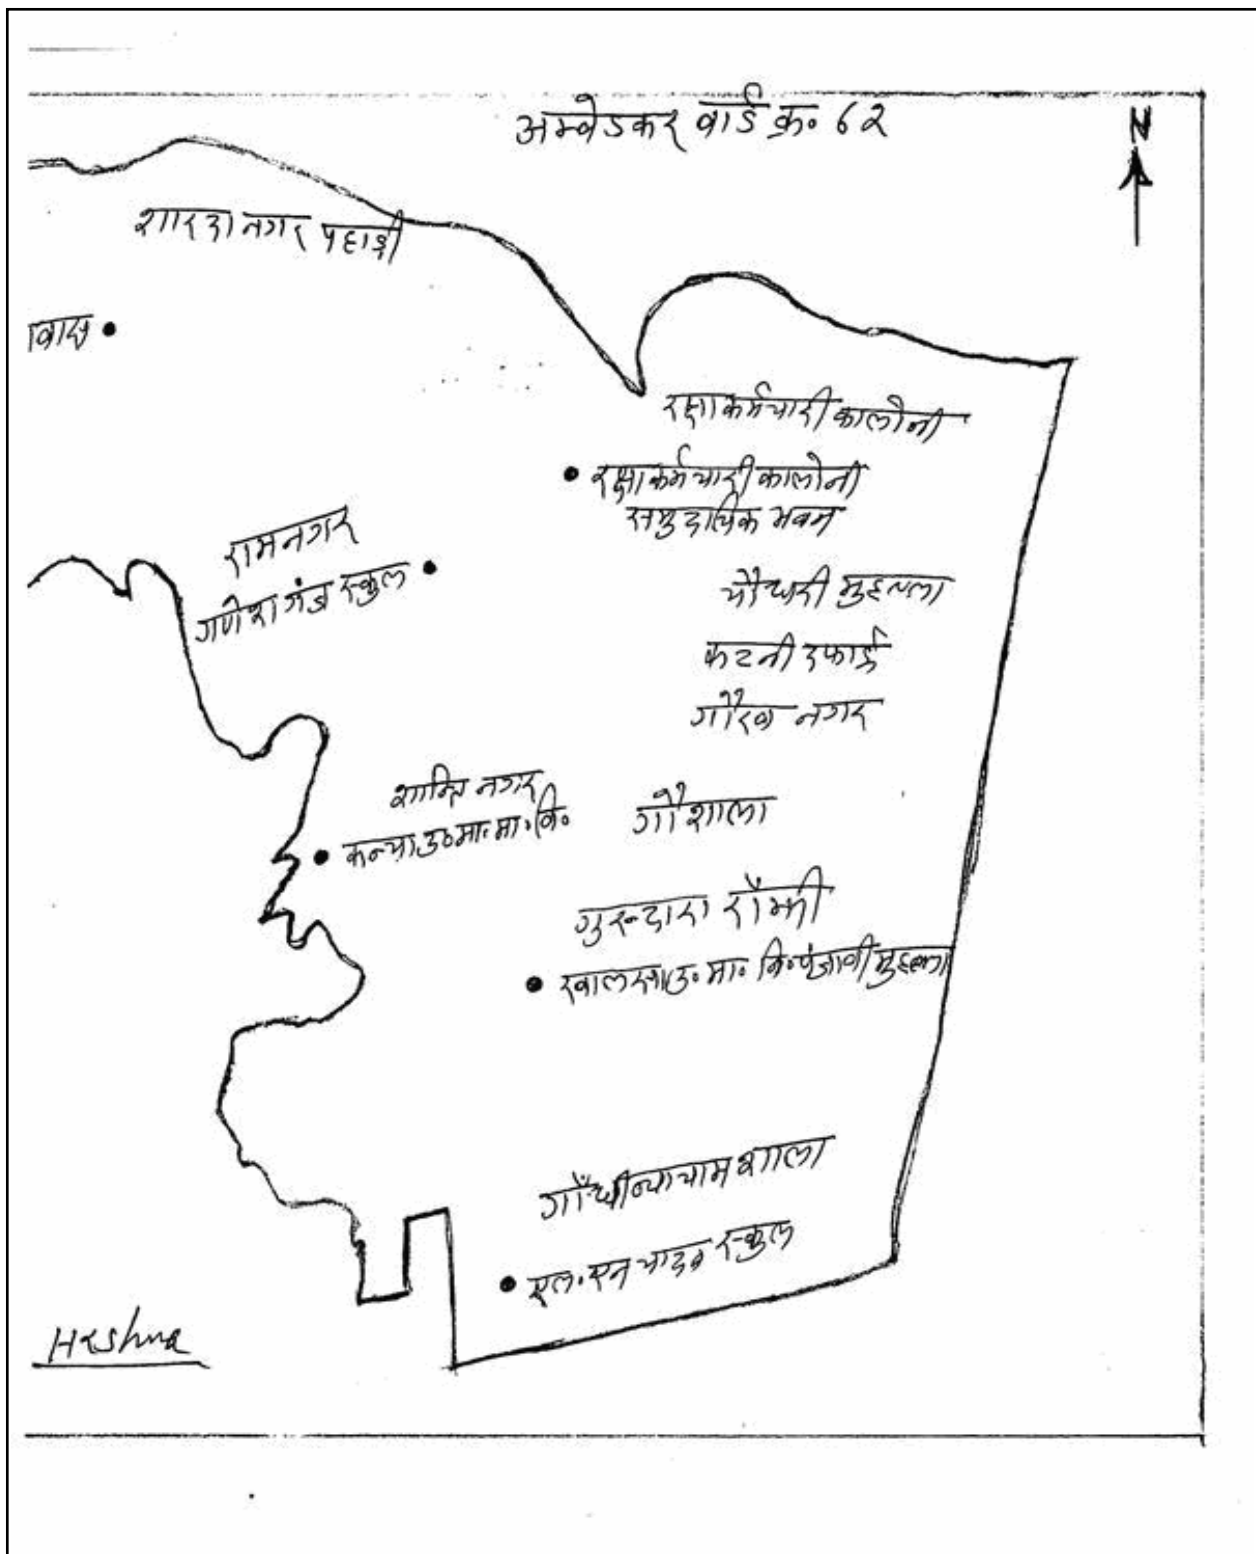 अम्वेडकर वार्ड क्र॰ ६२
N
शारदा नगर पहाड़ी
रक्षा कर्मचारी कालोनी
रक्षा कर्मचारी कालोनी
समुदायिक भवन
रामनगर
गणेश गंज स्कुल
चौधरी मुहल्ला
कटनी दफाई
गौरव नगर
शान्ति नगर
कन्या उ॰मा॰मा॰वि॰
गौशाला
गुरुद्वारा राँझी
खालसा उ॰ मा॰ वि॰ पंजाबी मुहल्ला
गाँधी व्यायाम शाला
एल॰एन यादव स्कुल